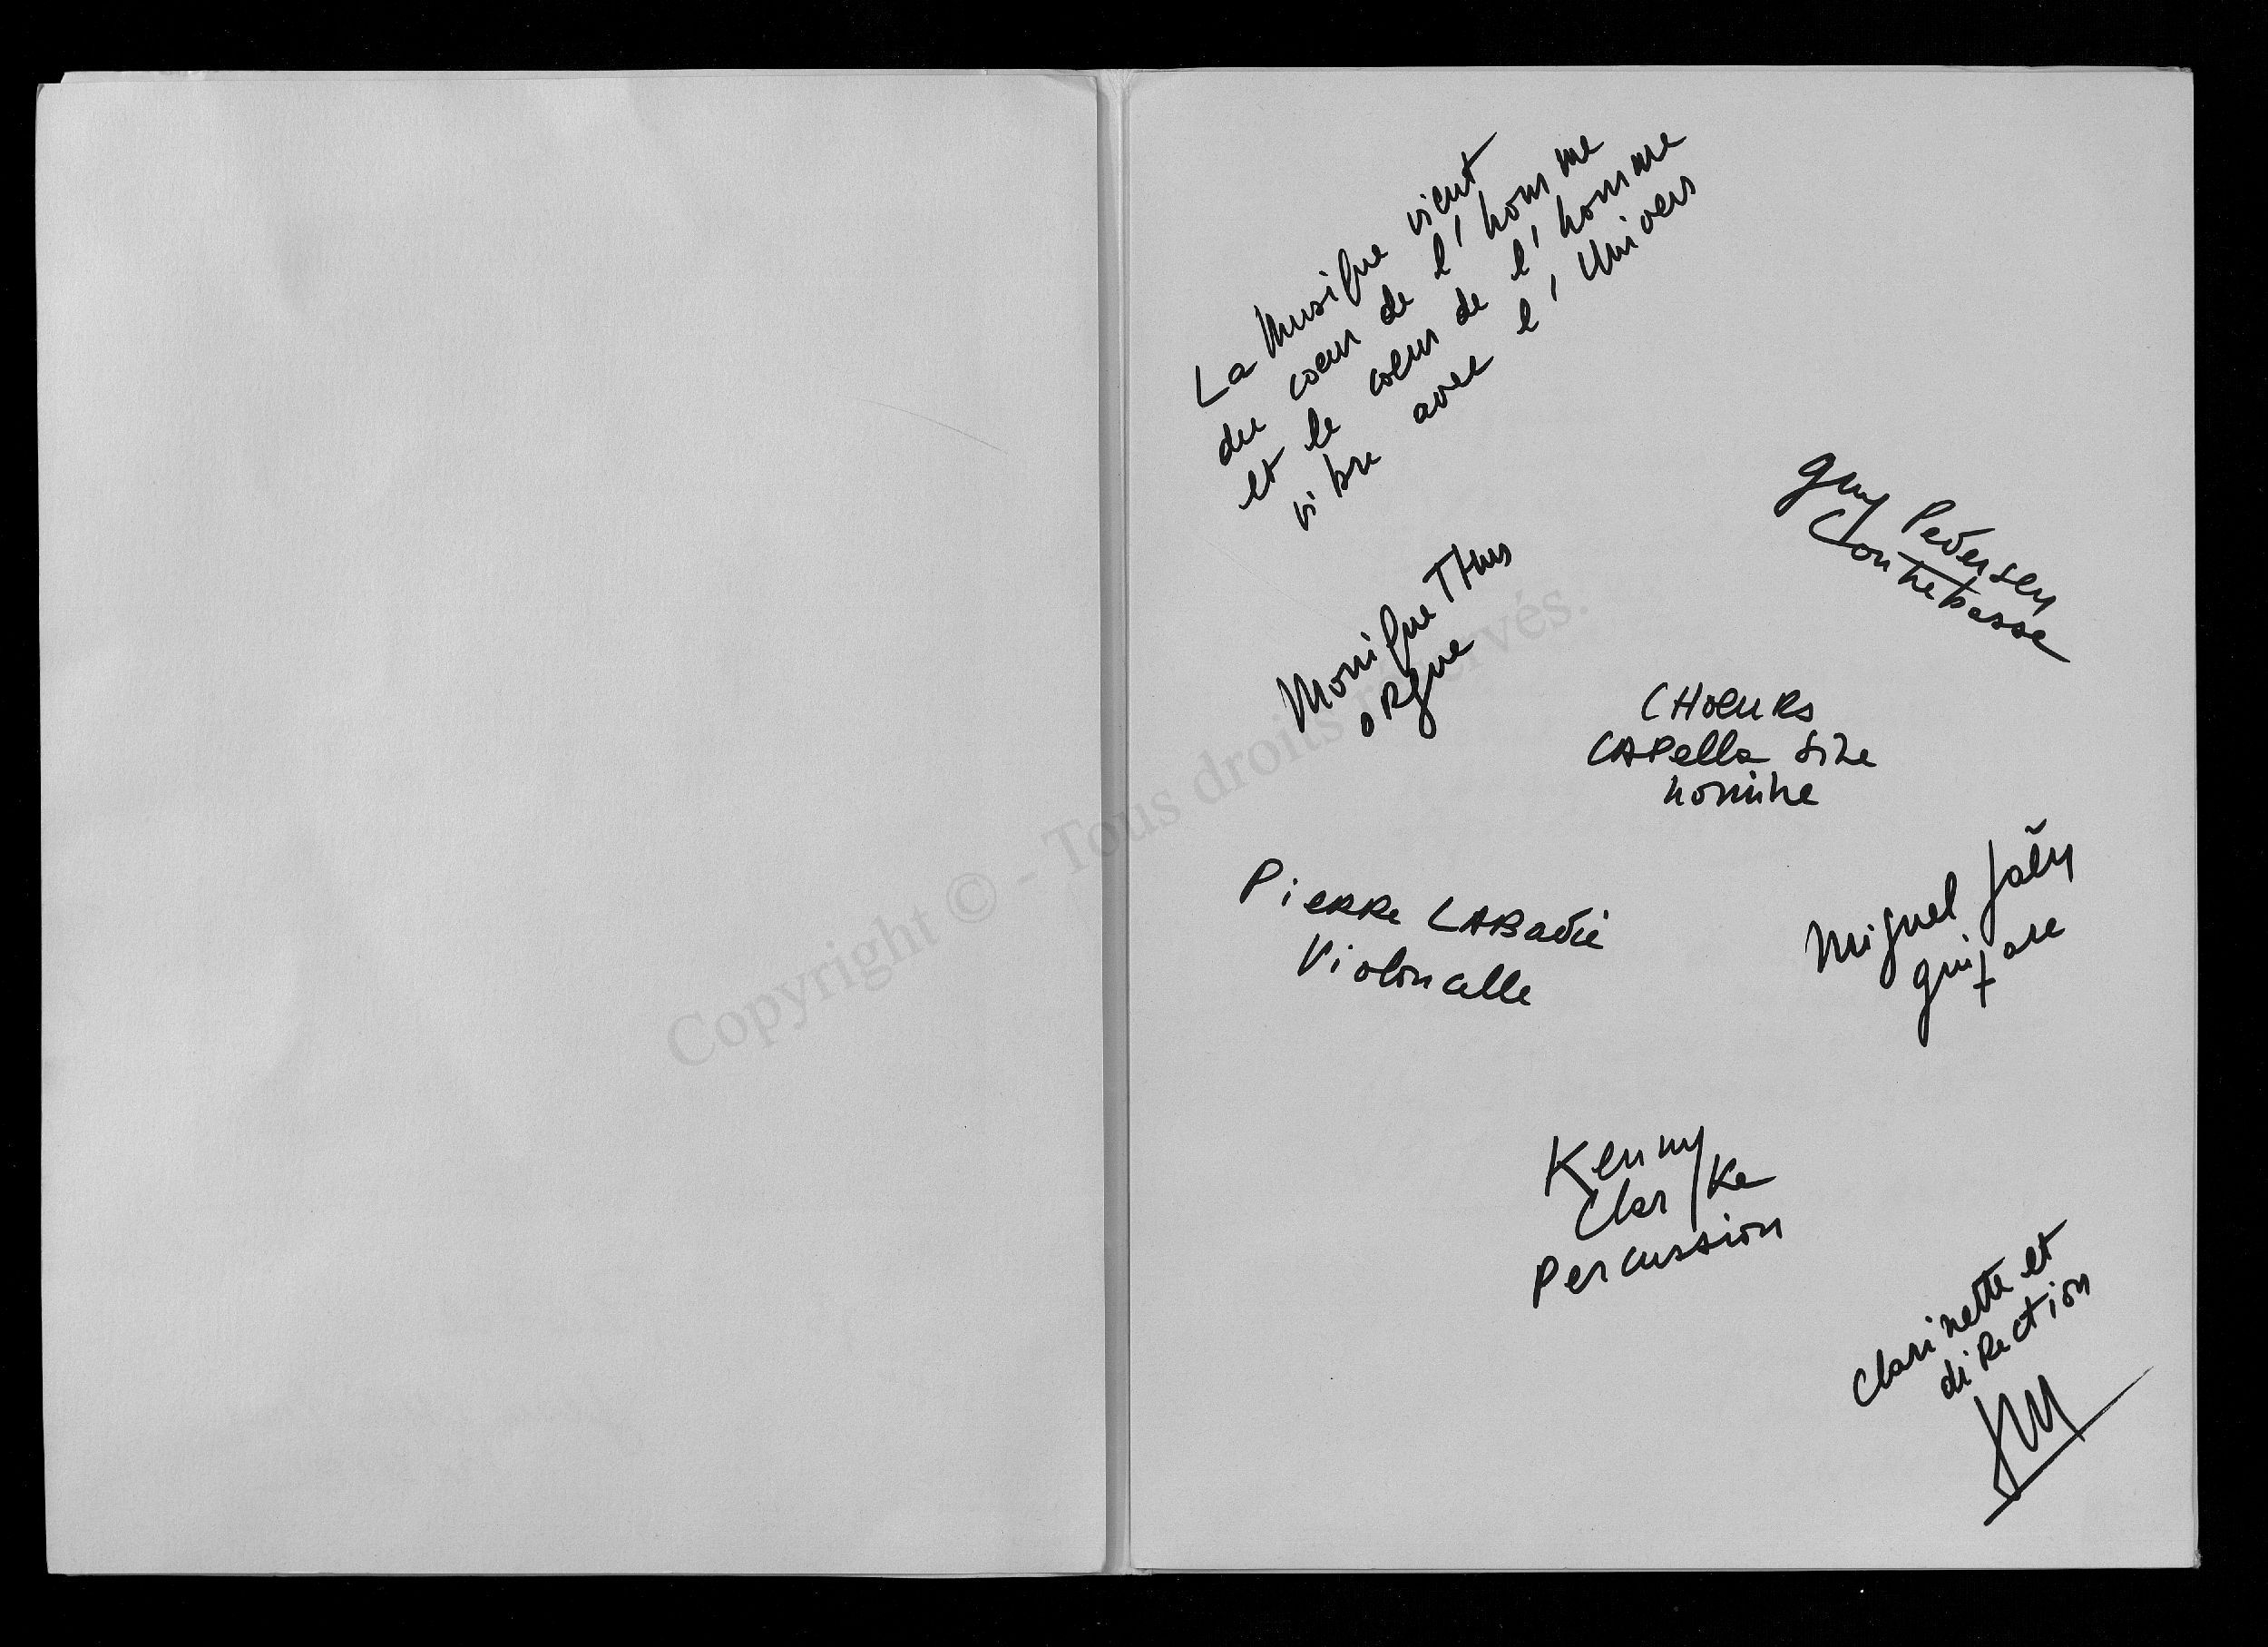 La Musique vient
du coeur de l'homme
et le coeur de l'homme
vibre avec l'Univers
Guy Pedersen
Contrebasse
Monique Thus
ORgue
CHOEURS
CAPella Sine
nomine
Pierre LABadie
Violoncelle
Miguel
guitare
Kenny
Clarke
Percussion
Clarinette et
diRection
Copyright © - Tous droits réservés.